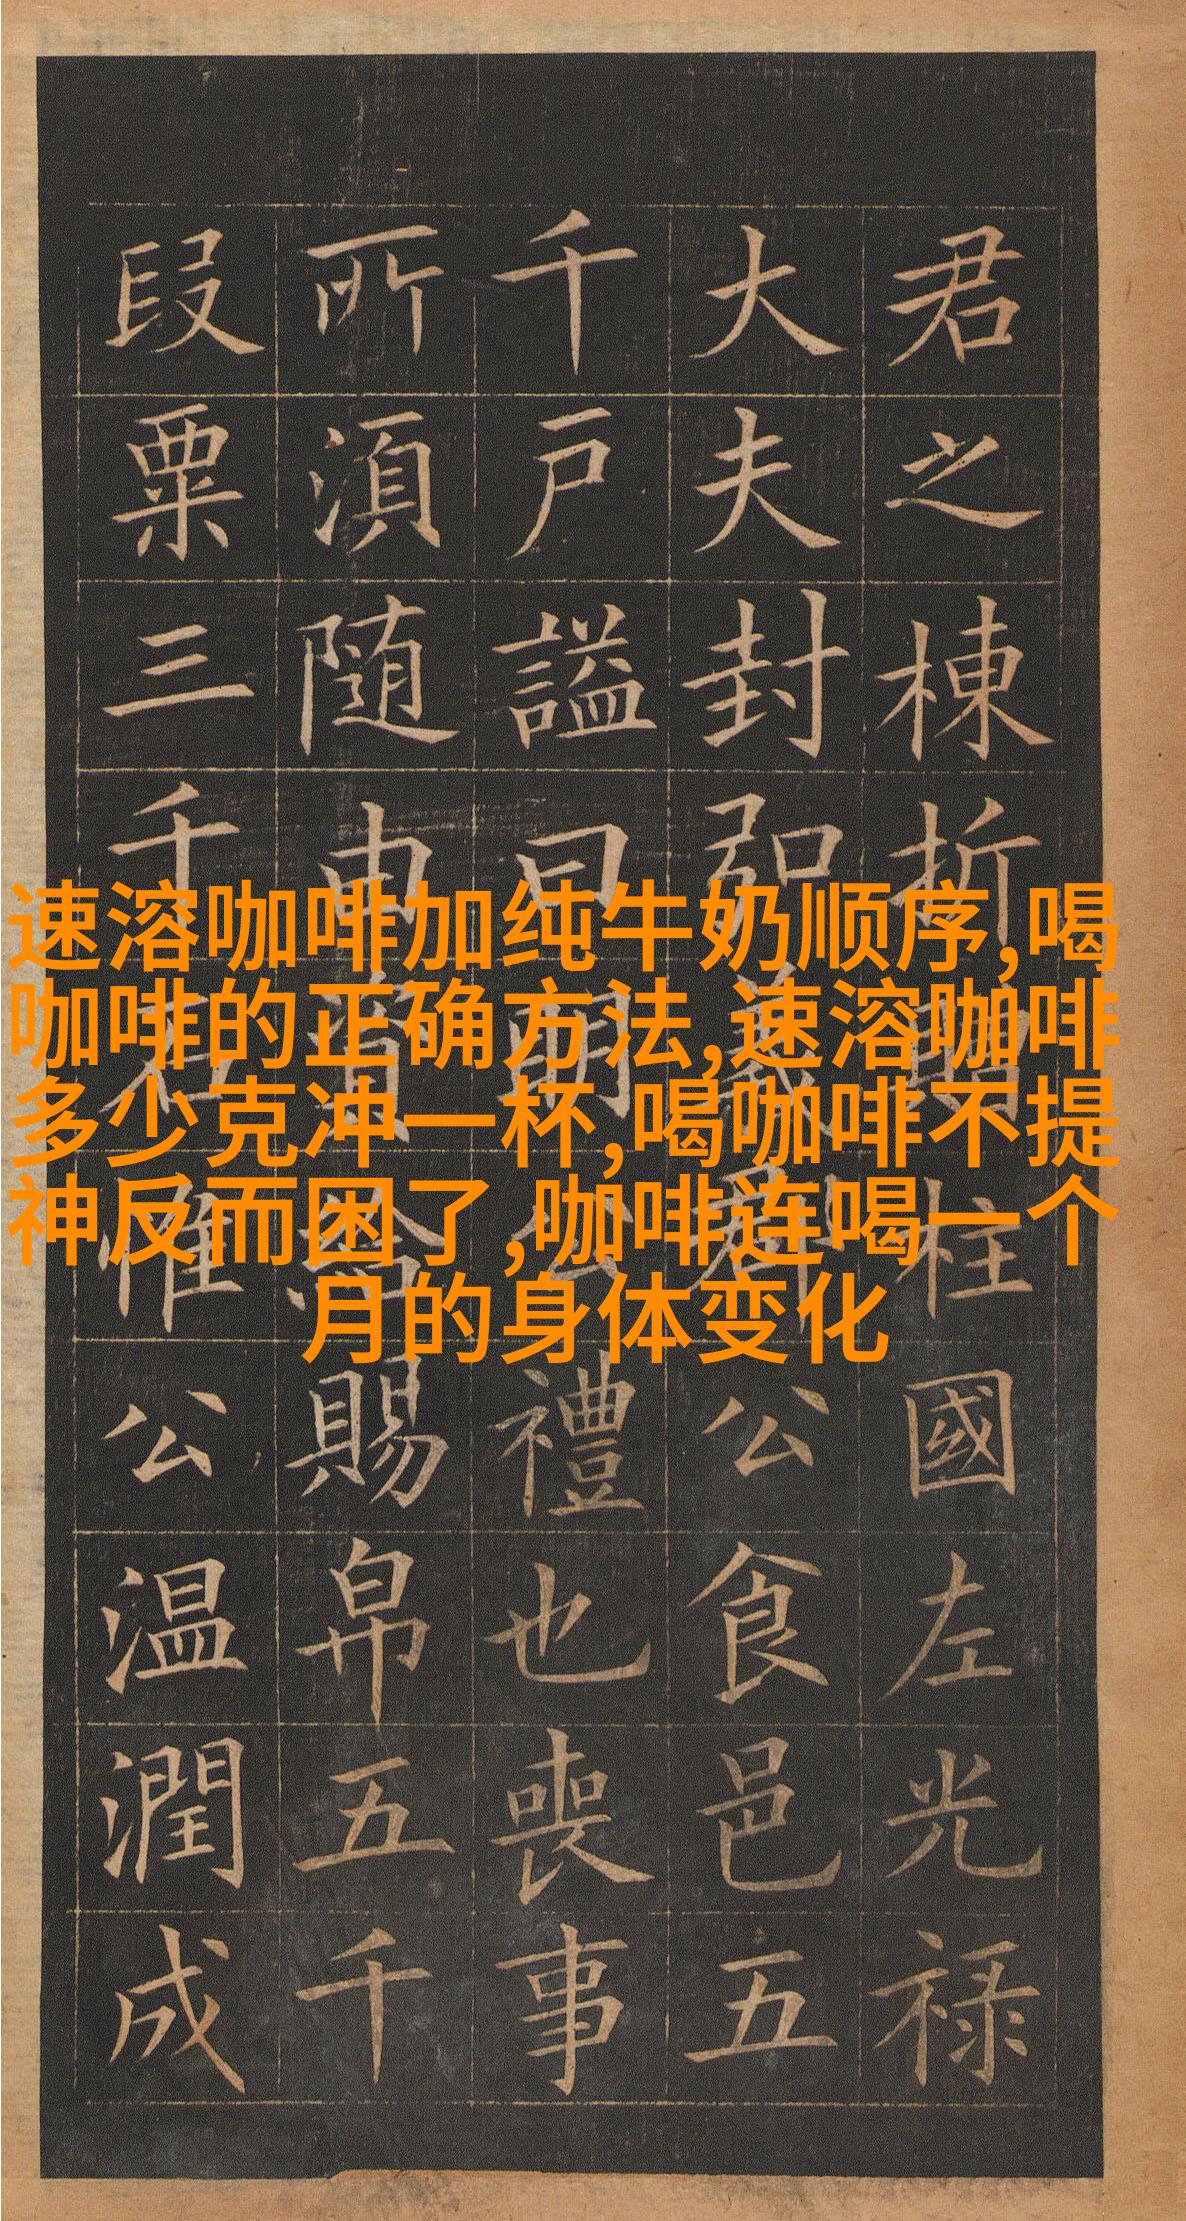 君之棟折贈柱國左光禄
大夫封弘義郡公食邑五
千戸謚曰明公禮也喪事
所湏随由資給賜帛五千
段粟三千石惟公温潤成
速溶咖啡加纯牛奶顺序,喝
咖啡的正确方法,速溶咖啡
多少克冲一杯,喝咖啡不提
神反而困了,咖啡连喝一个
月的身体变化